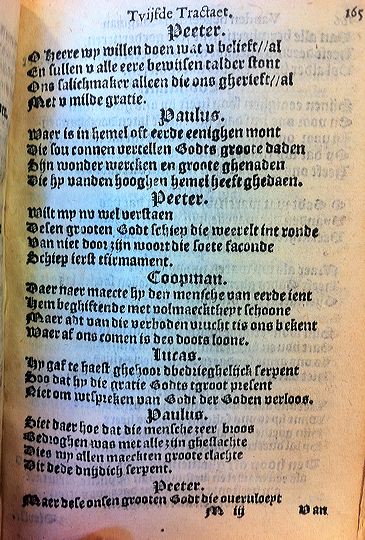 Tvijfde Tractaet.
165
Peeter.
O Heere wy willen doen wat v belieft//al
En sullen v alle eere bewijsen talder stont
Ons salichmaker alleen die ons gherieft//al
Met v milde gratie.
Paulus.
Waer is in hemel oft eerde eenighen mont
Die sou connen vertellen Godts groote daden
Sijn wonder wercken en groote ghenaden
Die hy vanden hooghen hemel heeft ghedaen.
Peeter.
Wilt my nv wel verstaen
Desen grooten Godt schiep die weerelt int ronde
Van niet door zijn woort die soete faconde
Schiep ierst tfirmament.
Coopman.
Daer naer maecte hy den mensche van eerde ient
Hem beghiftende met volmaecktheyt schoone
Maer adt van die verboden vrucht tis ons bekent
Waer af ons comen is des doots loone.
Lucas.
Hy gaf te haest ghehoor dbedrieghelijck serpent
Soo dat hy die gratie Godts tgroot present
Niet om wtspreken van Godt der Goden verloos.
Paulus.
Siet daer hoe dat die mensche zeer broos
Bedroghen was met alle zijn gheslachte
Dies wy allen maeckten groote clachte
Dit dede dnijdich serpent.
Peeter.
Maer dese onsen grooten Godt die ouervloept
M iij
Van